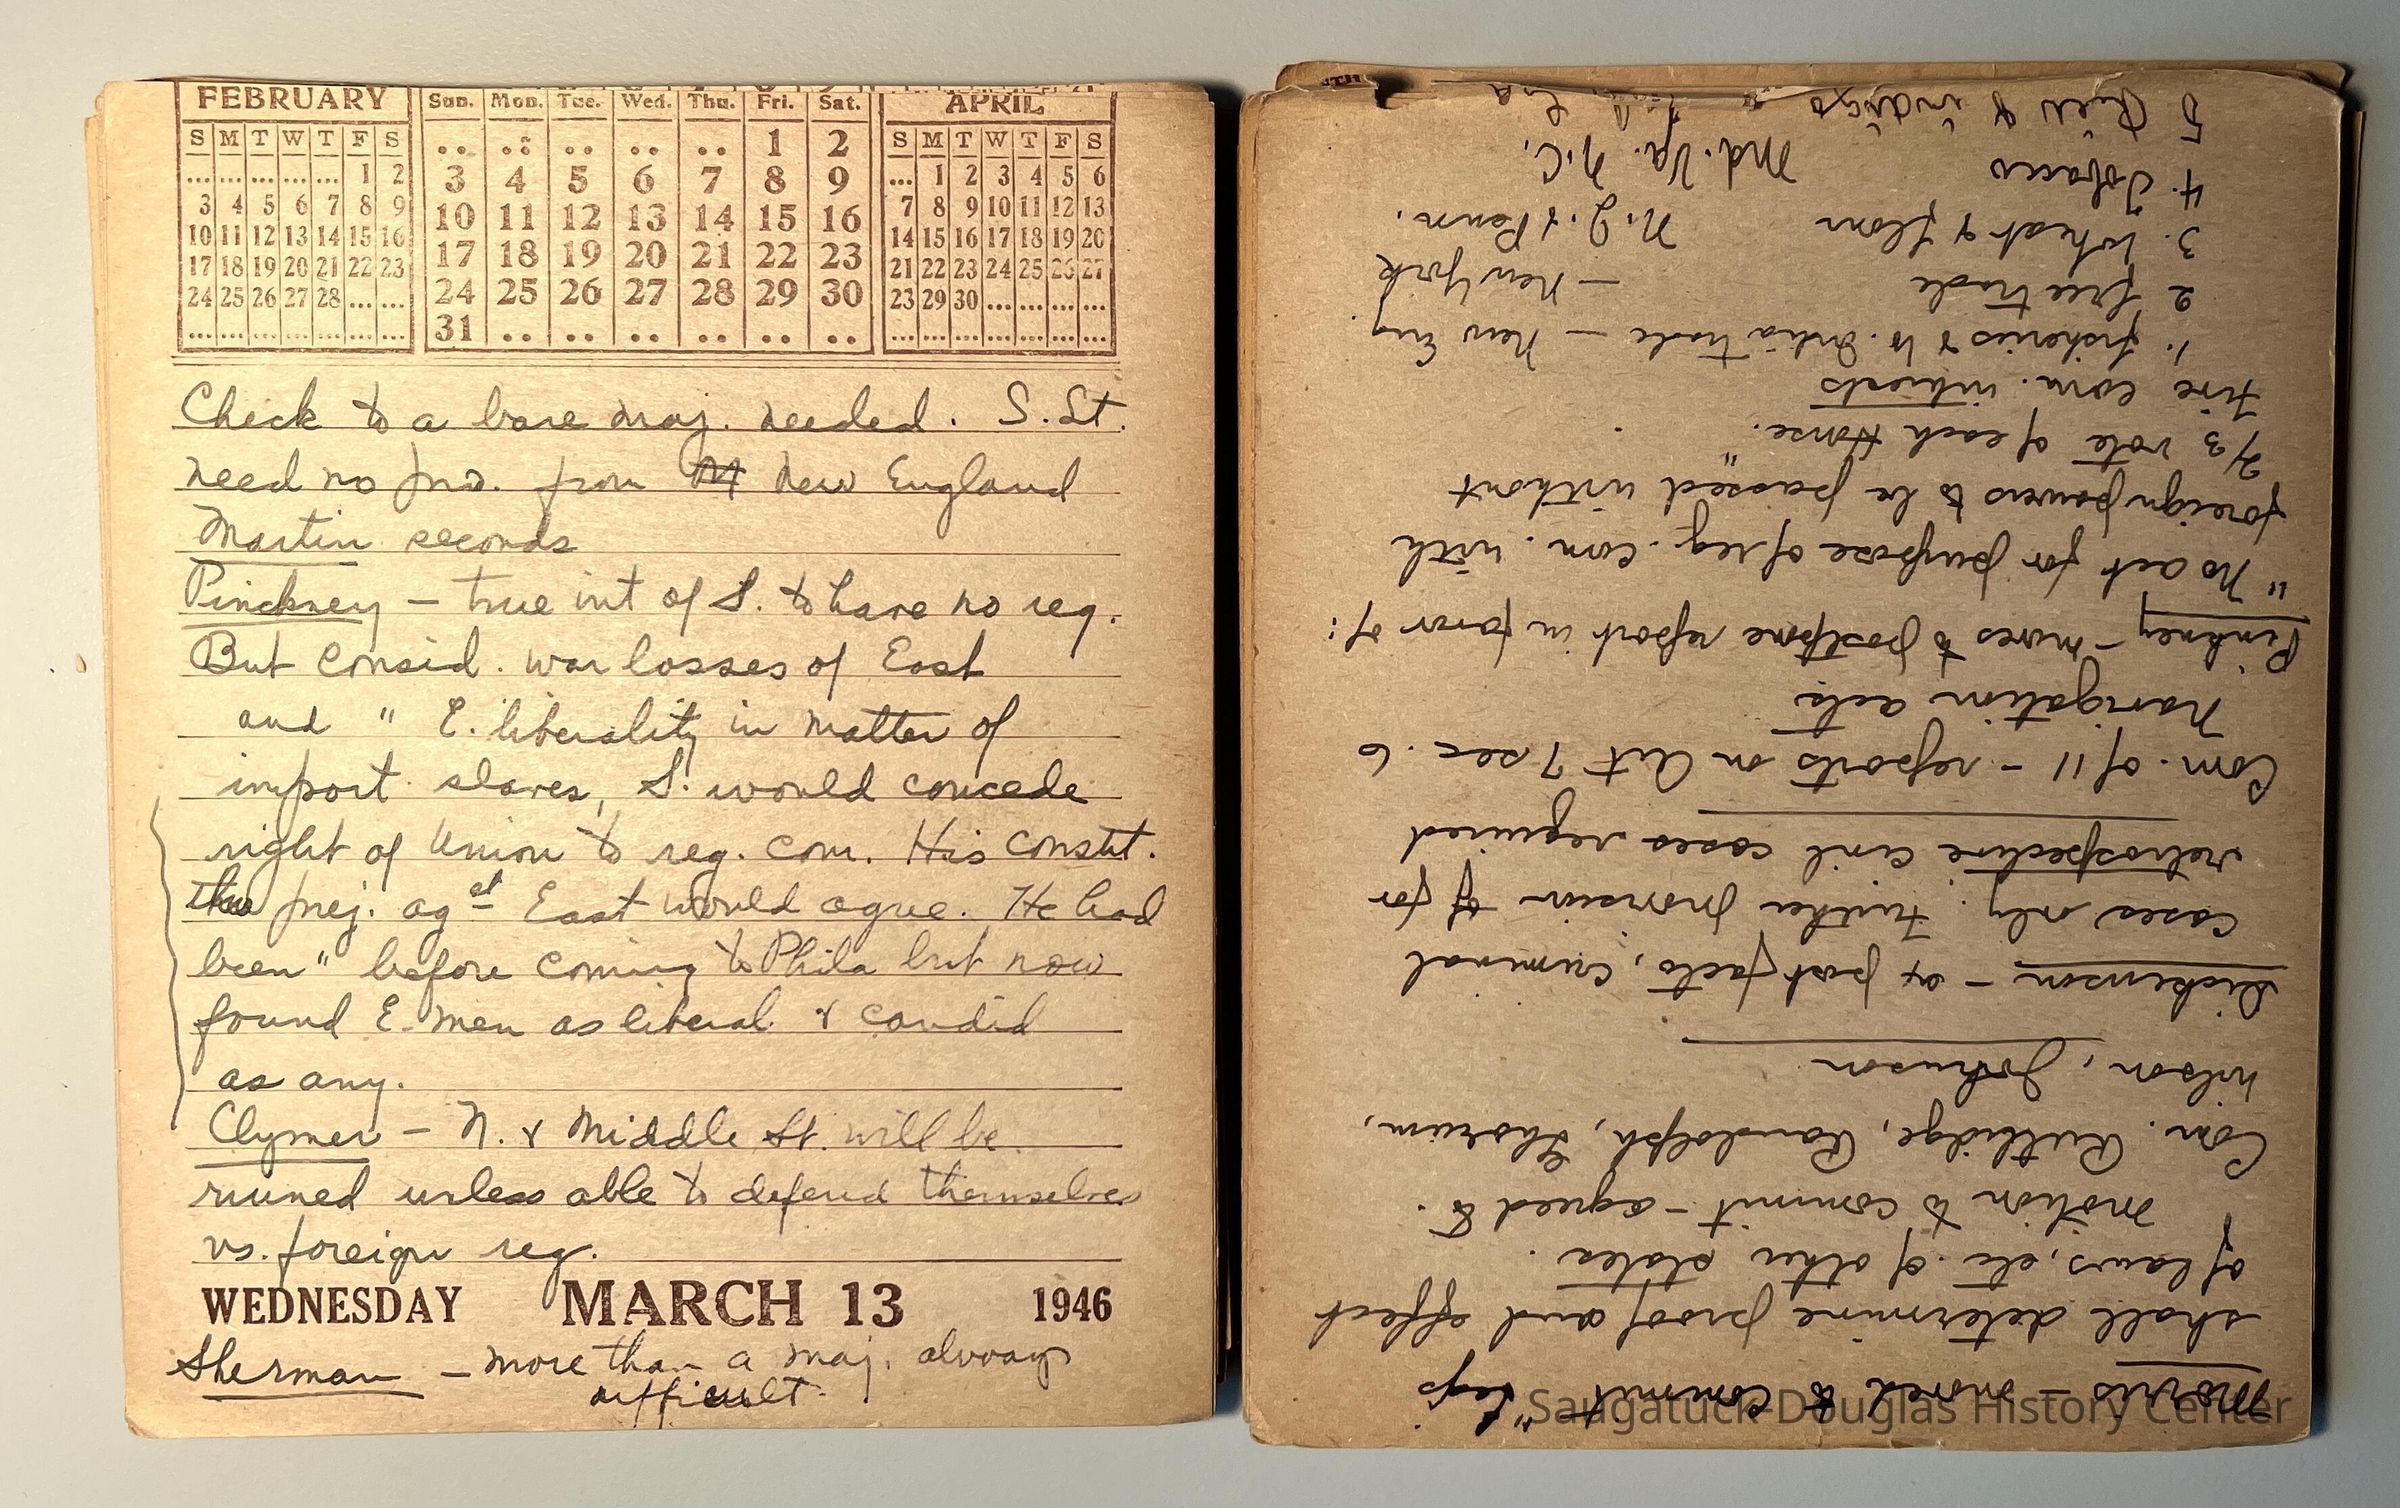 FEBRUARY
S M T W T F S
... ... ... ... ... 1 2
3 4 5 6 7 8 9
10 11 12 13 14 15 16
17 18 19 20 21 22 23
24 25 26 27 28 ... ...
... ... ... ... ... ... ...
Sun. Mon. Tue. Wed. Thu. Fri. Sat.
.. .. .. .. .. 1 2
3 4 5 6 7 8 9
10 11 12 13 14 15 16
17 18 19 20 21 22 23
24 25 26 27 28 29 30
31 .. .. .. .. .. ..
APRIL
S M T W T F S
... 1 2 3 4 5 6
7 8 9 10 11 12 13
14 15 16 17 18 19 20
21 22 23 24 25 26 27
23 29 30 ... ... ... ...
... ... ... ... ... ... ...
Check to a bare maj. needed. S. St.
need no from New England
Martin seconds
Pinckney – true int of S. to have no reg.
But consid. war losses of East
and " E. liberality in matter of
import slaves, S. would concede
right of Union to reg. com. His constit.
tho prej. agst East would agree. He had
been" before coming to Phila but now
found E. men as liberal & candid
as any.
Clymer – N. & Middle St. will be
ruined unless able to defend themselves
vs. foreign reg.
WEDNESDAY MARCH 13 1946
Sherman – more than a maj. always
difficult.
Morris – moved to commit "Legs
shall determine proof and effect
of laws, etc. of other states.
motion to commit – agreed to.
Com. Rutlidge, Randolph, Ghorum,
Wilson, Johnson
Dickenson – ex post facto, criminal
cases only. Further provision for
retrospective civil cases required
Com. of 11 – reports on Art 7 sec. 6
Navigation acts
Pinkney – moves to postpone report in favor of:
"No act for purpose of reg. com. with
foreign powers to be passed without
2/3 vote of each House."
five com. interests
1. fisheries & W. India trade – New Eng.
2 free trade – New York
3. Wheat & flour N.J. & Penn.
4. Tobacco Md. Va. N.C.
5 Rice & indigo
Saugatuck-Douglas History Center